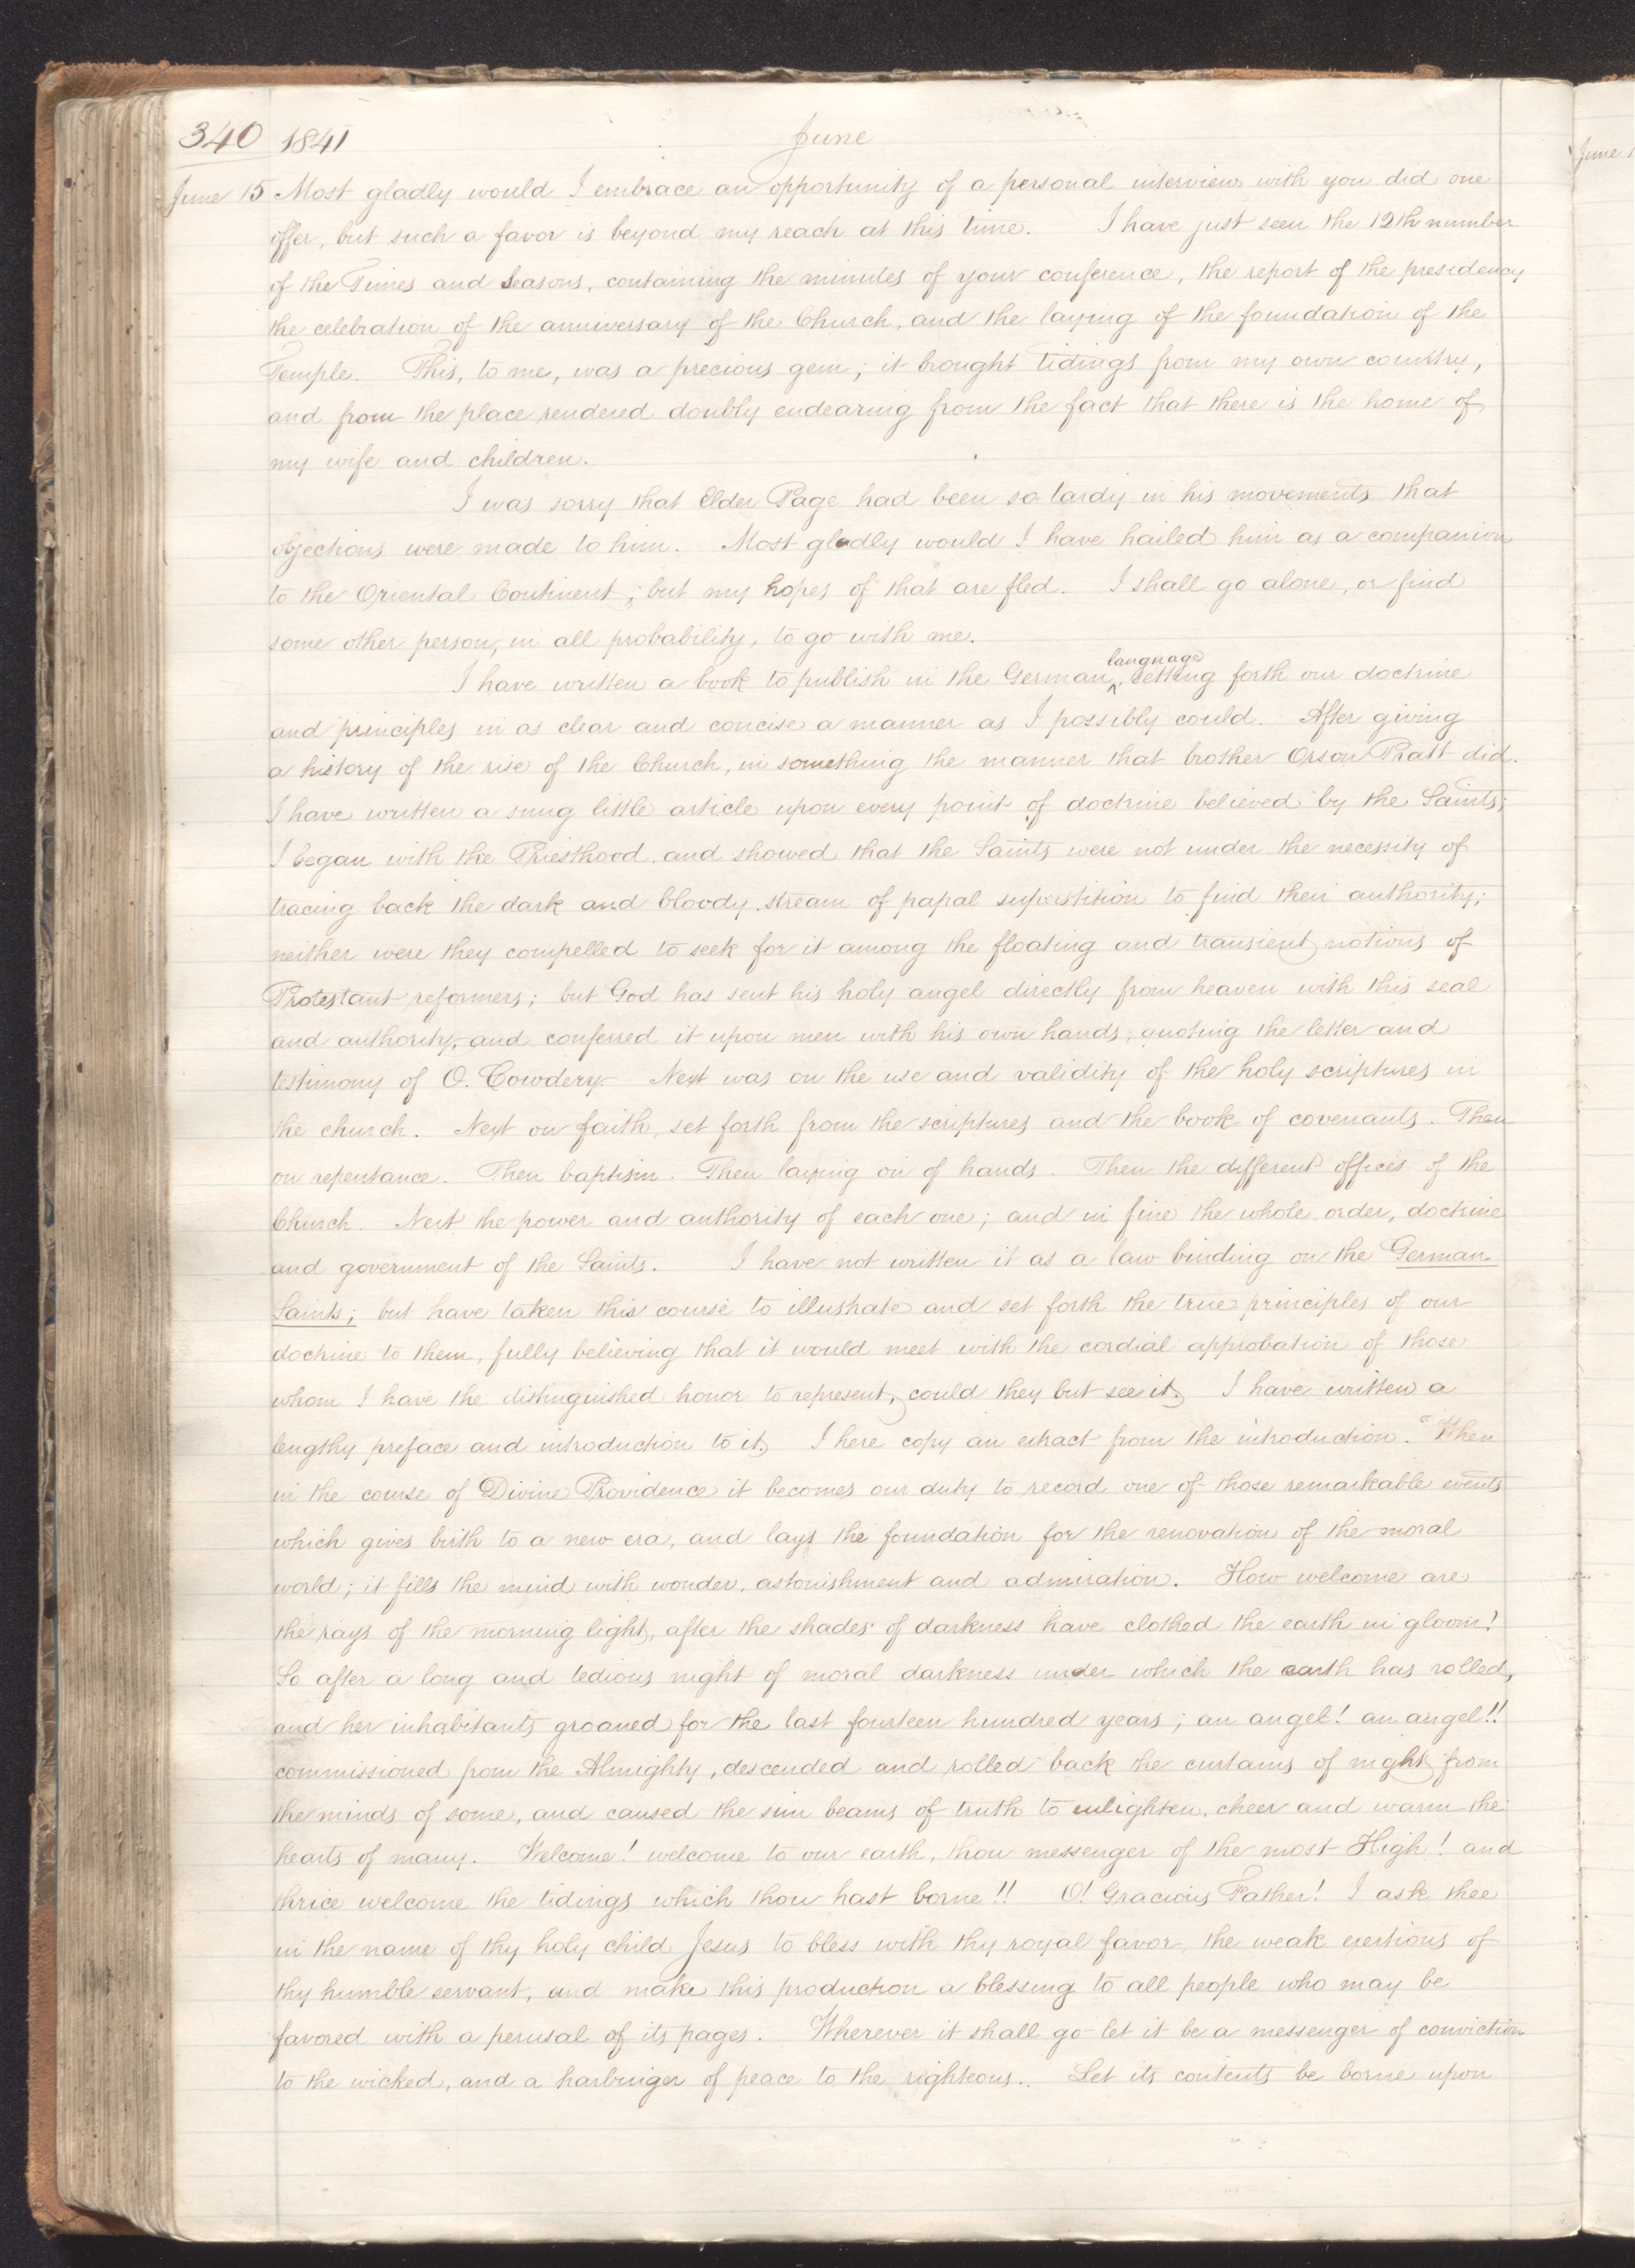 340 1841 June
June 15 Most gladly would I embrace an opportunity of a personal interview with you did one
offer, but such a favor is beyond my reach at this time. I have just seen the 12th number
of the Times and Seasons, containing the minutes of your conference, the report of the presidency
the celebration of the anniversary of the Church, and the laying of the foundation of the
Temple. This, to me, was a precious gem; it brought tidings from my own country,
and from the place rendered doubly endearing from the fact that there is the home of
my wife and children.
I was sorry that Elder Page had been so tardy in his movements that
objections were made to him. Most gladly would I have hailed him as a companion
to the Oriental Continent; but my hopes of that are fled. I shall go alone, or find
some other person, in all probability, to go with me.
language
I have written a book to publish in the German ^ setting forth our doctrine
and principles in as clear and concise a manner as I possibly could. After giving
a history of the rise of the Church, in something the manner that brother Orson Pratt did.
I have written a snug little article upon every point of doctrine believed by the Saints;
I began with the Priesthood and showed that the Saints were not under the necessity of
tracing back the dark and bloody stream of papal superstition to find their authority;
neither were they compelled to seek for it among the floating and transient notions of
Protestant reformers; but God has sent his holy angel directly from heaven with this seal
and authority, and conferred it upon men with his own hands; quoting the letter and
testimony of O. Cowdery Next was on the use and validity of the holy scriptures in
the church. Next on faith, set forth from the scriptures and the book of covenants. Then
on repentance. Then baptism. Then laying on of hands. Then the different offices of the
Church. Next the power and authority of each one; and in fine the whole order, doctrine
and government of the Saints. I have not written it as a law binding on the German
Saints; but have taken this course to illustrate and set forth the true principles of our
doctrine to them, fully believing that it would meet with the cordial approbation of those
whom I have the distinguished honor to represent, could they but see it. I have written a
lengthy preface and introduction to it. I here copy an extract from the introduction. "When
in the course of Divine Providence it becomes our duty to record one of those remarkable events
which gives birth to a new era, and lays the foundation for the renovation of the moral
world; it fills the mind with wonder, astonishment and admiration. How welcome are
the rays of the morning light, after the shades of darkness have clothed the earth in gloom!
So after a long and tedious night of moral darkness under which the earth has rolled,
and her inhabitants groaned for the last fourteen hundred years; an angel! an angel!!
commissioned from the Almighty, descended and rolled back the curtains of night from
the minds of some, and caused the sun beams of truth to enlighten, cheer and warm the
hearts of many. Welcome! welcome to our earth, thou messenger of the most High! and
thrice welcome the tidings which thou hast borne!! O! Gracious Father! I ask thee
in the name of thy holy child Jesus to bless with thy royal favor, the weak exertions of
thy humble servant, and make this production a blessing to all people who may be
favored with a perusal of its pages. Wherever it shall go let it be a messenger of conviction
to the wicked, and a harbinger of peace to the righteous. Let its contents be borne upon
June 1